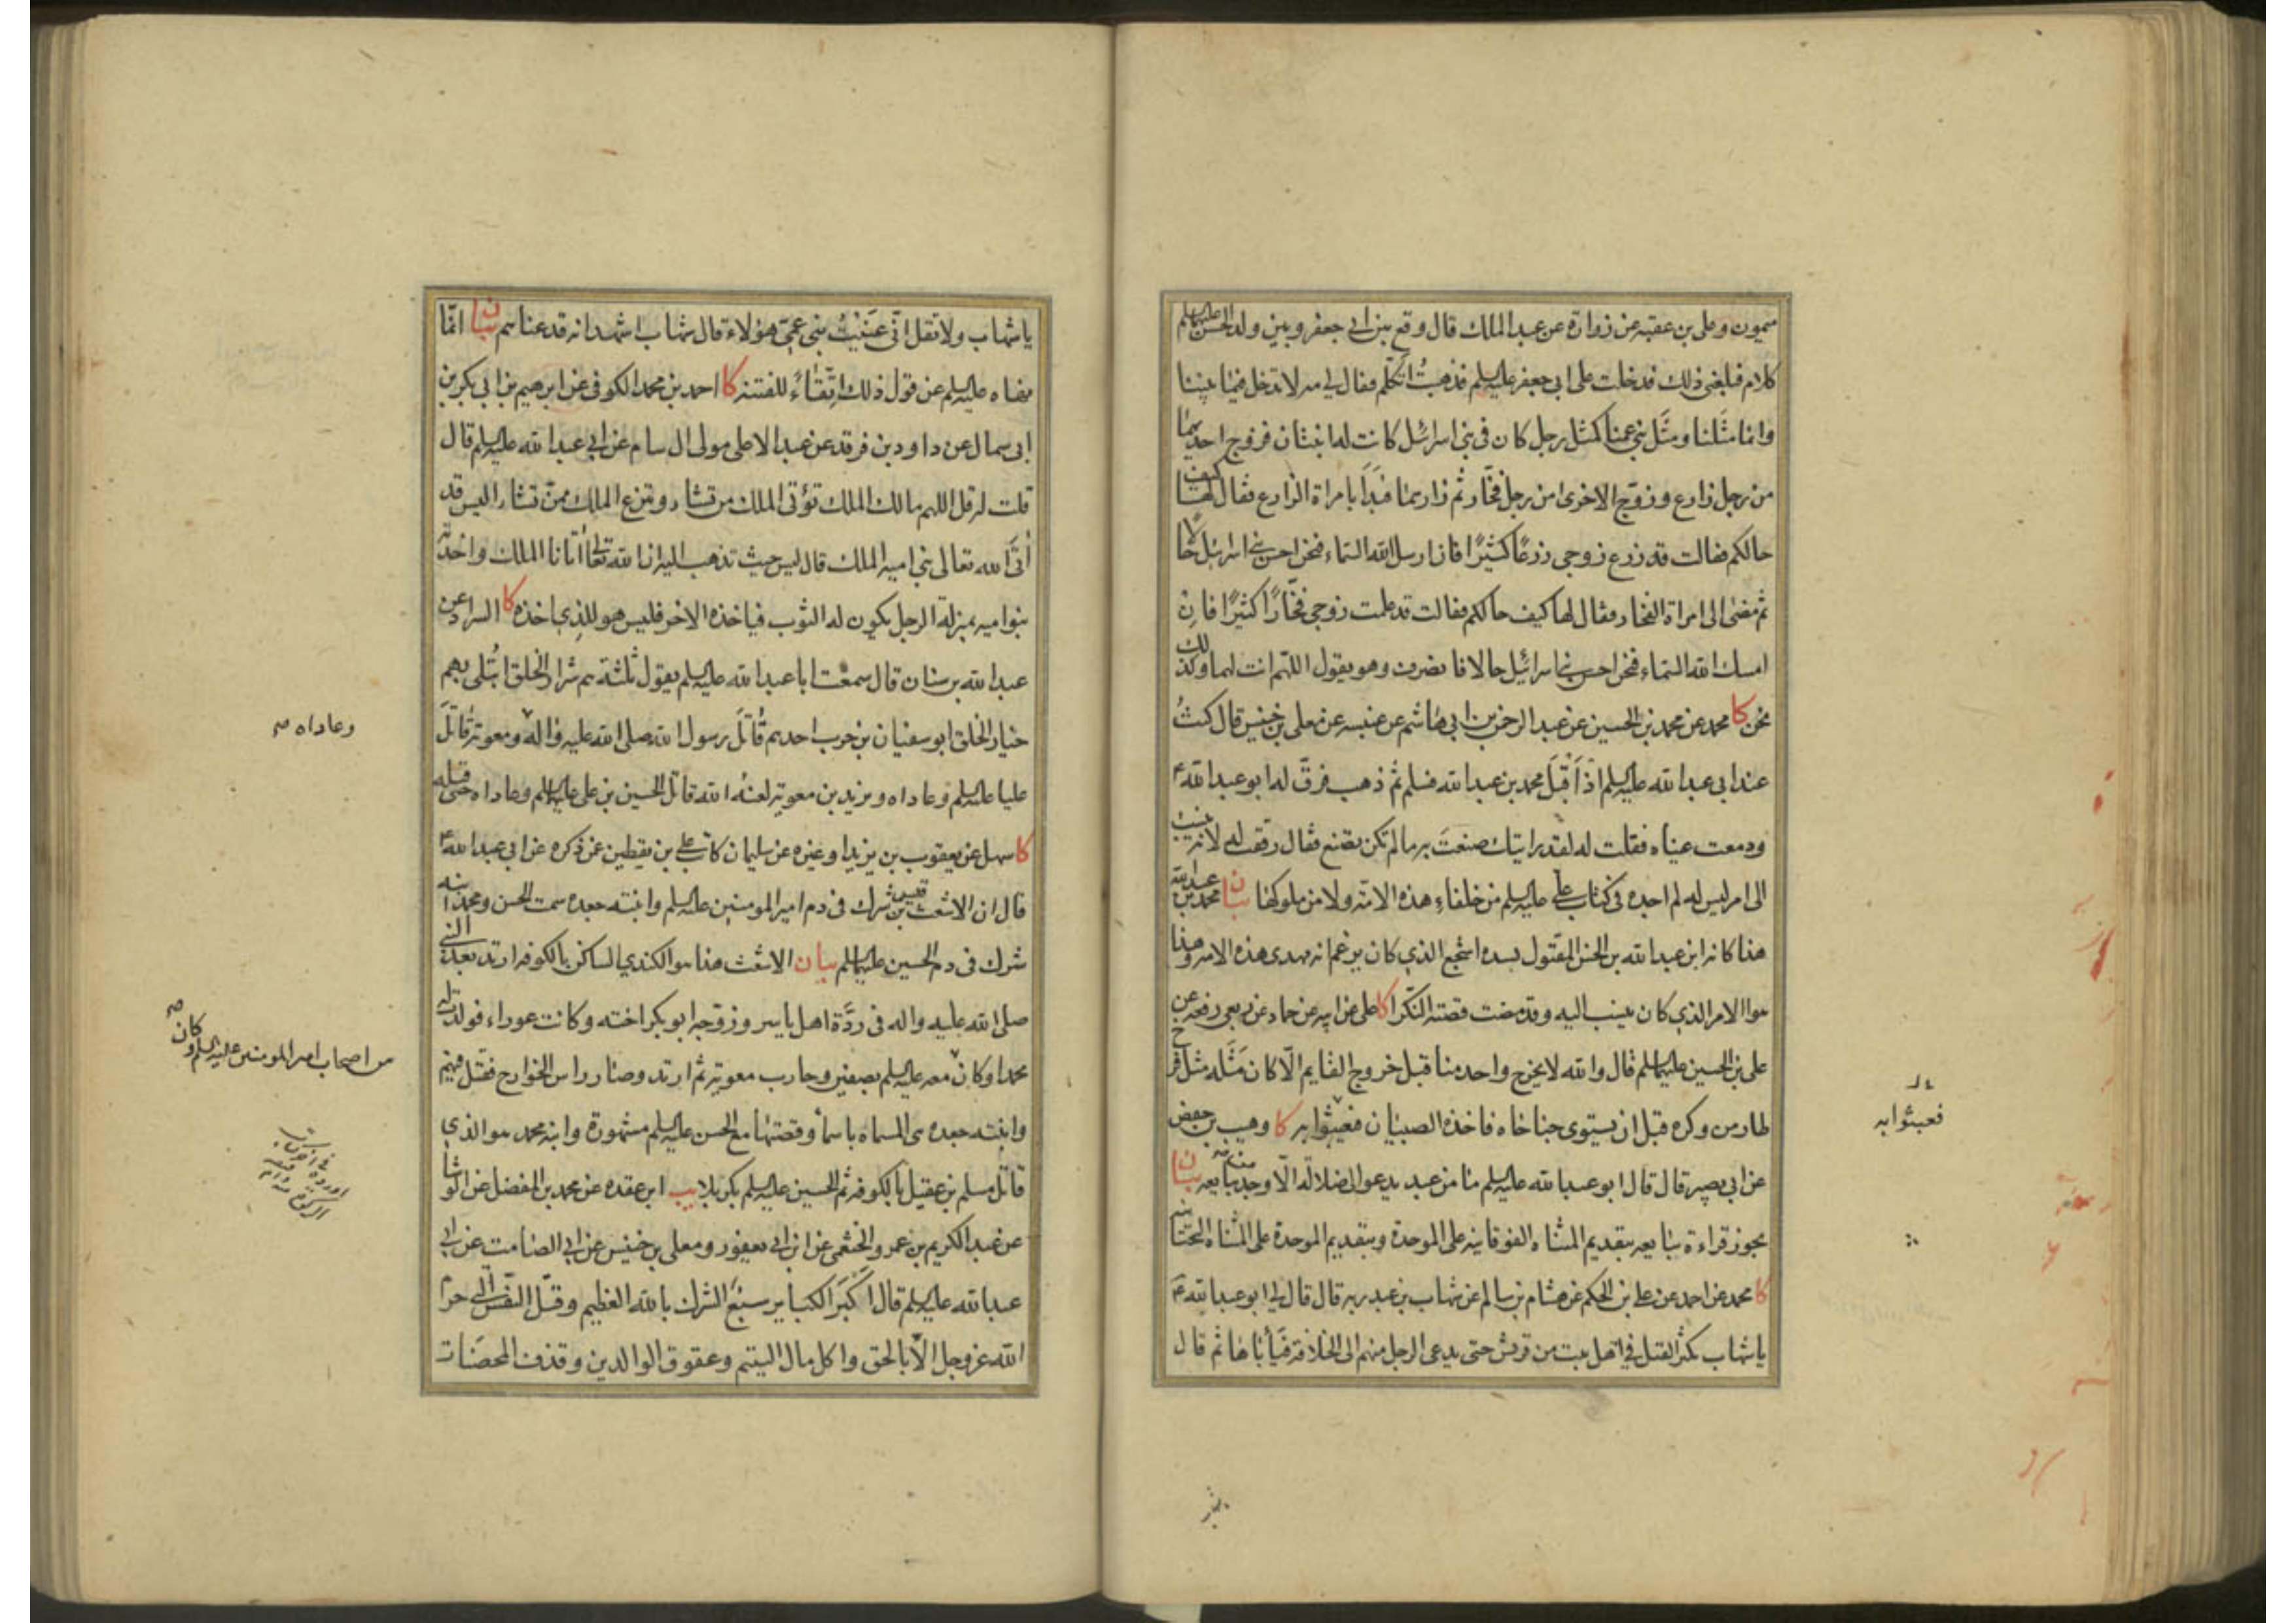 ميمون وعلى بن عقبه عن زرارة عن عبد الملك قال وقع بين ابى جعفر وبين ولد الحسن عليهما السلم
كلام فبلغنى ذلك فدخلت على ابى جعفر عليه السلم فذهبتُ اتكلم فقال لى مه لا تدخل فيما بيننا
وانما مثَلنا ومثَل بنى عمنا كمثل رجل كان فى بنى اسرائيل كانت له ابنتان فزوج احديهما
من رجل زارع وزوّج الاخرى من رجل فخّار ثم زارهما فبدَأ بامراة الزارع فقال لها كيف
حالكم فقالت قد زرع زوجى زرعًا كثيرًا فان ارسل الله السماء فنحن احسن بنى اسرائيل حالًا
ثم مضى الى امراة الفخار فقال لها كيف حالكم فقالت قد عملت زوجى فخّارًا كثيرًا فان
امسك الله السماء فنحن احسن بنى اسرائيل حالا فانصرف وهو يقول اللهم انت لهما وكذلك
نحن كا محمد عن محمد بن الحسين عن عبد الرحمن بن ابى هاشم عن عنبسه عن معلى بن خنيس قال كنتُ
عند ابى عبد الله عليه السلم اذ اَقبَلَ محمد بن عبد الله فسلم ثم ذهب فرقّ له ابو عبد الله ع
ودمعت عيناه فقلت له لقد رايتك صنعتَ به ما لم تكن تصنع فقال رققت له لانه ينسب
الى امر ليس له لم اجده فى كتاب على عليه السلم من خلفاء هذه الامّه ولا من ملوكها بيان محمد بن عبد الله
هذا كانه ابن عبد الله بن الحسن المقتول بسده اشجع الذي كان يزعم انه مهدى هذه الامه وهذا
هو الامر الذي كان ينسب اليه وقد مضت قصته النكرا كا على عن ابيه عن حماد عن ربعى رفعه عن
على بن الحسين عليهما السلم قال والله لا يخرج واحد منا قبل خروج القايم الّا كان مَثَله مثل فرخ
طار من وكره قبل ان يستوى جناحاه فاخذه الصبيان فعبثوا به كا وهيب بن حفص
عن ابى بصير قال قال ابو عبد الله عليه السلم ما من عبد يدعو الى ضلالة الّا وجد من يتابعه بيان
يجوز قراءة يتابعه بتقديم المثناه الفوقانيه على الموحدة وبتقديم الموحدة على المثناة التحتانيه
كا محمد عن احمد عن على بن الحكم عن هشام بن سالم عن شهاب بن عبد ربه قال قال لى ابو عبد الله ع
يا شهاب يكثر القتل فى اهل بيت من قريش حتى يدعى الرجل منهم الى الخلافة فيَأباها ثم قال
فعبثوا به
يا شهاب ولا تقل انّى عَنَيْتُ بنى عمّى هؤلاء قال شهاب اشهد انه قد عناهم بيان انّما
نهاه عليه السلم عن قول ذلك اتّقاءً للفتنه كا احمد بن محمد الكوفى عن ابرهيم بن ابى بكر بن
ابى سمال عن داود بن فرقد عن عبد الاعلى مولى ال سام عن ابى عبد الله عليه السلم قال
قلت له قل اللهم مالك الملك تؤتى الملك من تشاء وتنزع الملك ممن تشاء اليس قد
أتَى الله تعالى بنى اميه الملك قال ليس حيث تذهب اليه ان الله تعالى أتانا الملك واخذته
بنو اميه بمنزلة الرجل يكون له الثوب فياخذه الاخر فليس هو للذى اخذه كا السراد عن
عبد الله بن سنان قال سمعت ابا عبد الله عليه السلم يقول ثلثة هم شرار الخلق ابتُلى بهم
خيار الخلق ابو سفيان بن حرب احدهم قاتَلَ رسول الله صلى الله عليه واله ومعويه قاتَلَ
عليا عليه السلم وعاداه ويزيد بن معويه لعنه الله قاتَل الحسين بن على عليهما السلم وعاداه حتى قتله
كا سهل عن يعقوب بن يزيد او غيره عن سليمان كاتب على بن يقطين عن ذكره عن ابى عبد الله ع
قال ان الاشعث بن قيس شرك فى دم امير المومنين عليه السلم وابنته جعده سمت الحسن ومحمد ابنه
شرك فى دم الحسين عليهما السلم بيان الاشعث هذا هو الكندى الساكن بالكوفه ارتد بعد النبى
صلى الله عليه واله فى ردَّة اهل ياسر وزوّجه ابو بكر اخته وكانت عوراء فولدت له
محمدا وكان معه عليه السلم بصفين وحارب معويه ثم ارتد وصار راس الخوارج فقتل فيهم
وابنته جعده هى المسماه باسما وقصتها مع الحسن عليه السلم مشهورة وابنه محمد هو الذي
قاتل مسلم بن عقيل بالكوفه ثم الحسين عليه السلم بكربلا يب ابن عقده عن محمد بن المفضل عن الوشا
عن عبد الكريم بن عمرو الخثعمى عن ابن ابى يعفور ومعلى بن خنيس عن ابى الصامت عن ابى
عبد الله عليه السلم قال اَكبَرَ الكبائر سبع الشرك بالله العظيم وقتل النّفس التى حرم
الله عز وجل الّا بالحق واكل مال اليتيم وعقوق الوالدين وقذف المحصَنات
وعاداه صح
من اصحاب امير المومنين عليه السلم وكان صح